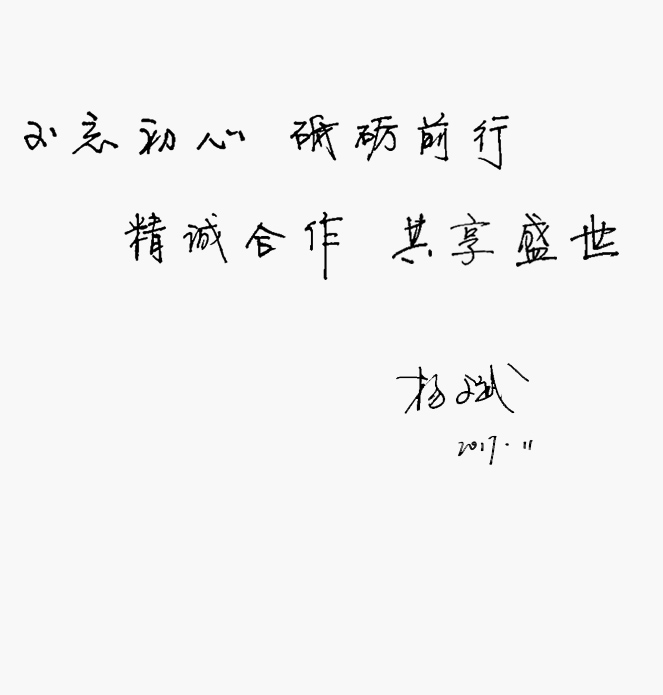 不忘初心 砥砺前行
精诚合作 共享盛世
杨斌
2017.11